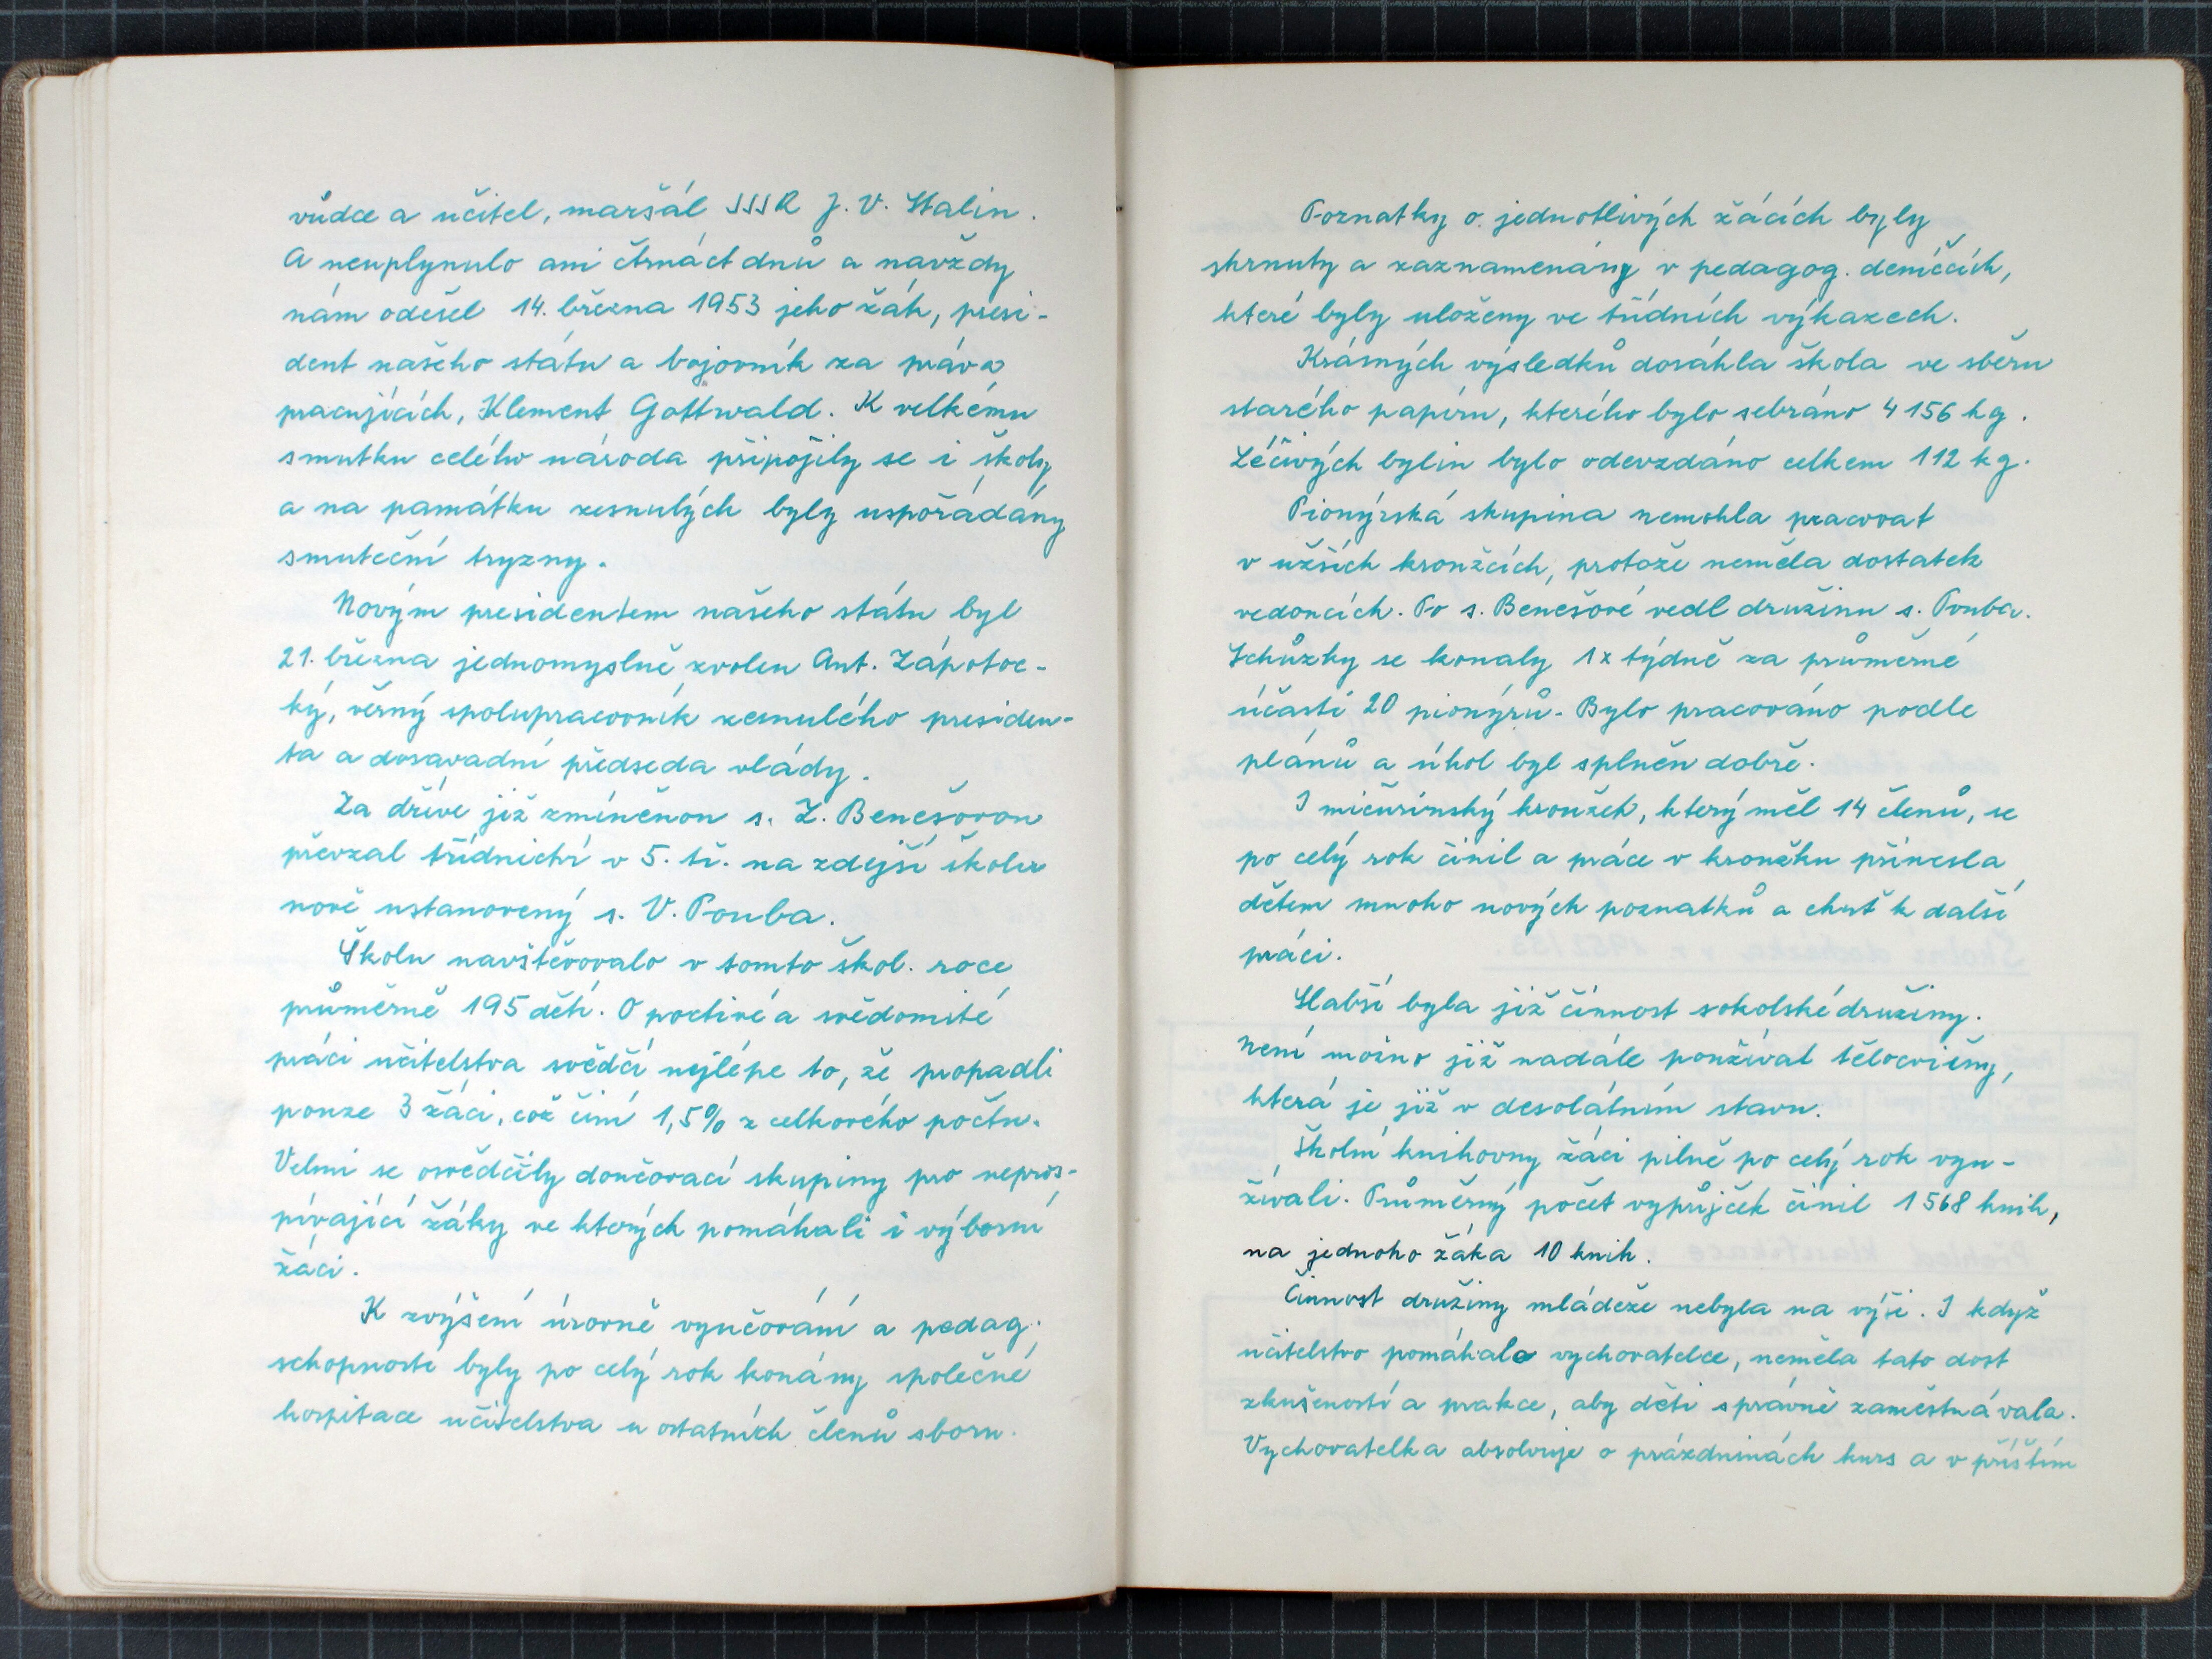 vůdce a učitel, maršál SSSR J. V. Stalin.
A neuplynulo ani čtrnáct dnů a navždy
nám odešel 14. března 1953 jeho žák, presi-
dent našeho státu a bojovník za práva
pracujících, Klement Gottwald. K velkému
smutku celého národa připojily se i školy
a na památku zesnulých byly uspořádány
smuteční tryzny.
Novým presidentem našeho státu byl
21. března jednomyslně zvolen Ant. Zápotoc-
ký, věrný spolupracovník zesnulého presiden-
ta a dosavadní předseda vlády.
Za dříve již zmíněnou s. Z. Benešovou
převzal třídnictví v 5. tř. na zdejší škole
nově ustanovený s. V. Pouba.
Školu navštěvovalo v tomto škol. roce
průměrně 195 dětí. O poctivé a svědomité
práci učitelstva svědčí nejlépe to, že propadli
pouze 3 žáci, což činí 1,5% z celkového počtu.
Velmi se osvědčily doučovací skupiny pro nepros-
pívající žáky ve kterých pomáhali i výborní
žáci.
K zvýšení úrovně vyučování a pedag.
schopností byly po celý rok konány společné
hospitace učitelstva u ostatních členů sboru.
Poznatky o jednotlivých žácích byly
shrnuty a zaznamenány v pedagog. deníčcích,
které byly uloženy ve třídních výkazech.
Krásných výsledků dosáhla škola ve sběru
starého papíru, kterého bylo sebráno 4 156 kg.
Léčivých bylin bylo odevzdáno celkem 112 kg.
Pionýrská skupina nemohla pracovat
v užších kroužcích, protože neměla dostatek
vedoucích. Po s. Benešové vedl družinu s. Pouba.
Schůzky se konaly 1x týdně za průměrné
účasti 20 pionýrů. Bylo pracováno podle
plánů a úkol byl splněn dobře.
I mičurinský kroužek, který měl 14 členů, se
po celý rok činil a práce v kroužku přinesla
dětem mnoho nových poznatků a chuť k další
práci.
Slabší byla již činnost sokolské družiny.
Není možno již nadále používat tělocvičny,
která je již v desolátním stavu.
Školní knihovny žáci pilně po celý rok vyu-
žívali. Průměrný počet vypůjček činil 1 568 knih,
na jednoho žáka 10 knih.
Činnost družiny mládeže nebyla na výši. I když
učitelstvo pomáhalo vychovatelce, neměla tato dost
zkušeností a prakce, aby děti správně zaměstnávala.
Vychovatelka absolvuje o prázdninách kurs a v příštím